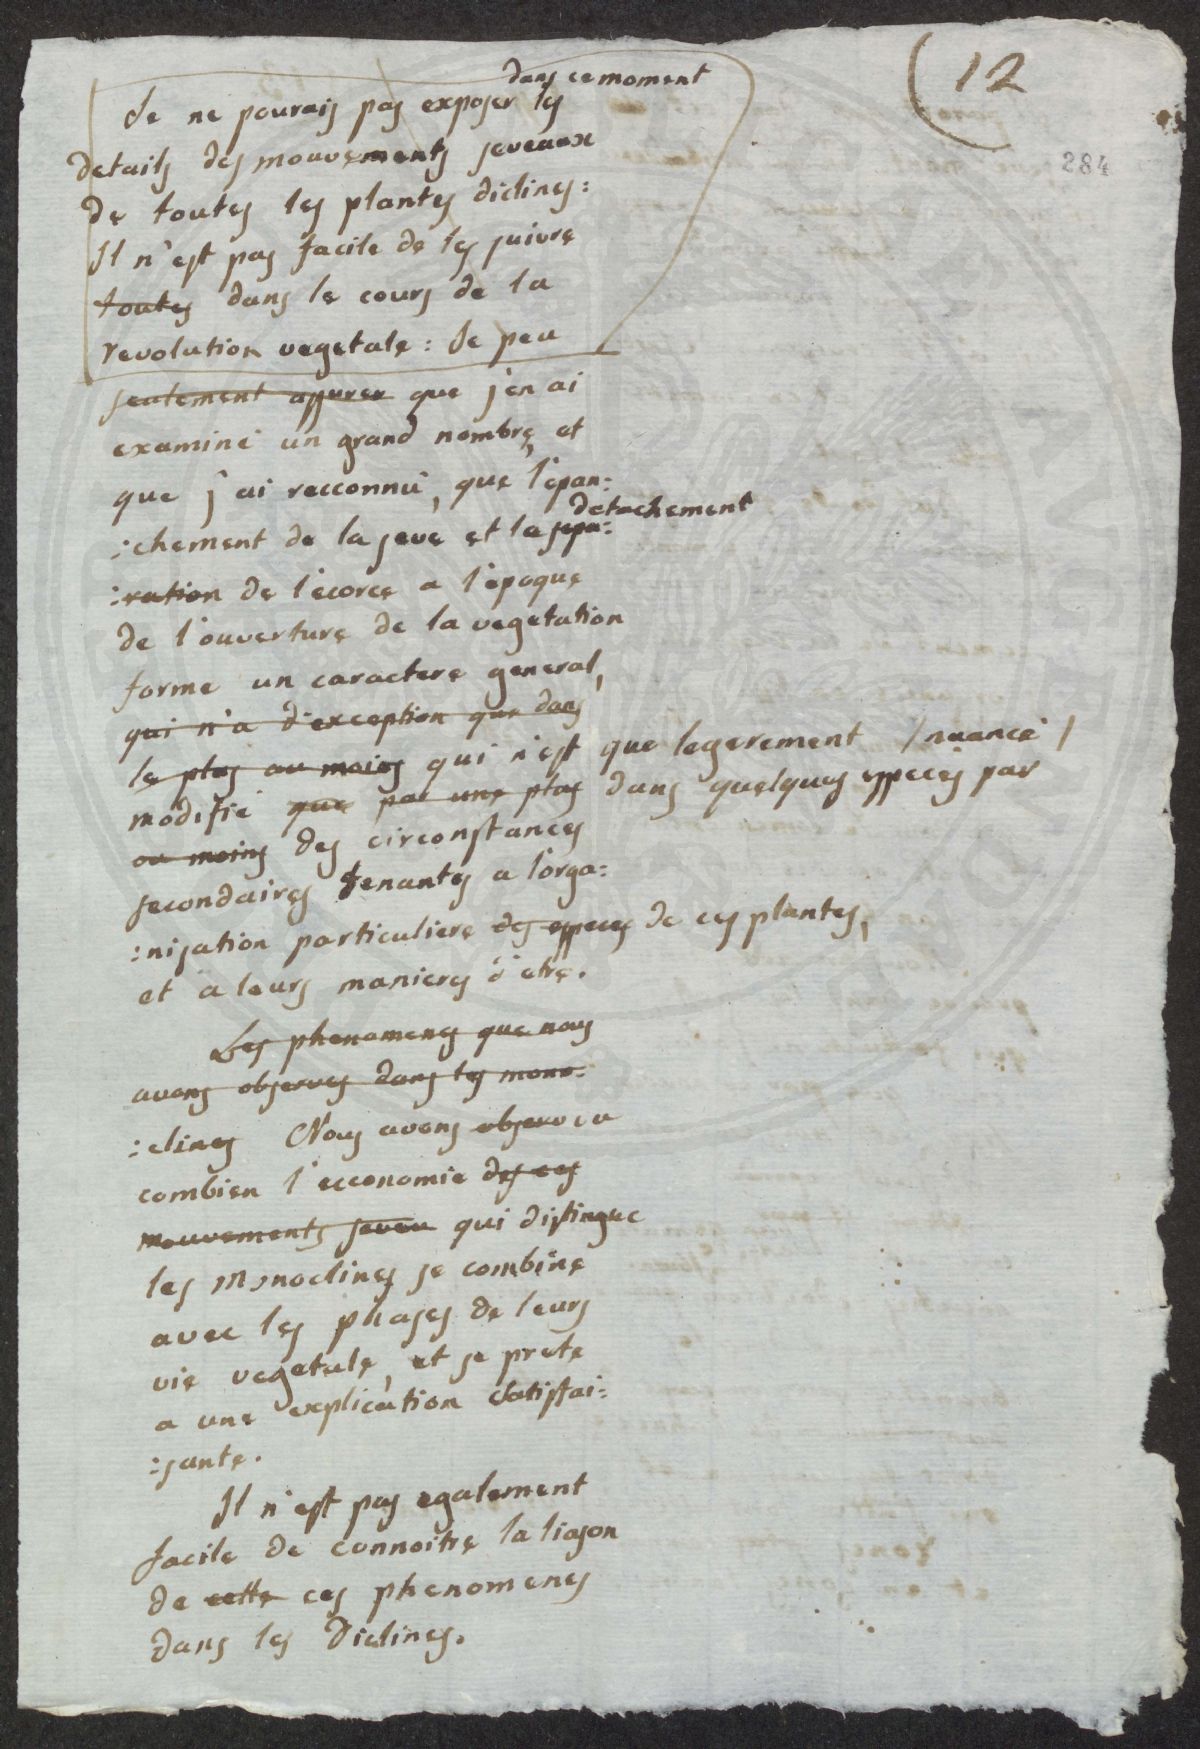 12
284
dans ce moment
Je ne pourais pas exposer les
details des mouvements seveaux
de toutes les plantes diclines:
Il n'est pas facile de les suivre
toutes dans le cours de la
revolution vegetale: Je peu
seulement assurer que j'en ai
examiné un grand nombre, et
que j'ai recconnu, que l'epan:
:chement de la seve et la sepa:
detachement
:ration de l'ecorce a l'epoque
de l'ouverture de la vegetation
forme un caractere general,
qui n'a d'exception que dans
le plus ou moins qui n'est que legerement /nuancé/
modifié que par une plus dans quelques especes par
ou moins des circonstances
secondaires tenantes a l'orga:
:nisation particuliere des especes de ces plantes,
et a leurs manieres d'etre.
Les phenomenes que nous
avons observes dans les mono:
:clines Nous avons observ vu
combien l'ecconomie des ces
mouvements seveu qui distingue
les Monoclines se combine
avec les phases de leurs
vie vegetale, et se prete
a une explication satisfai:
:sante.
Il n'est pas egalement
facile de connoitre la liason
de cette ces phenomenes
dans les Diclines.